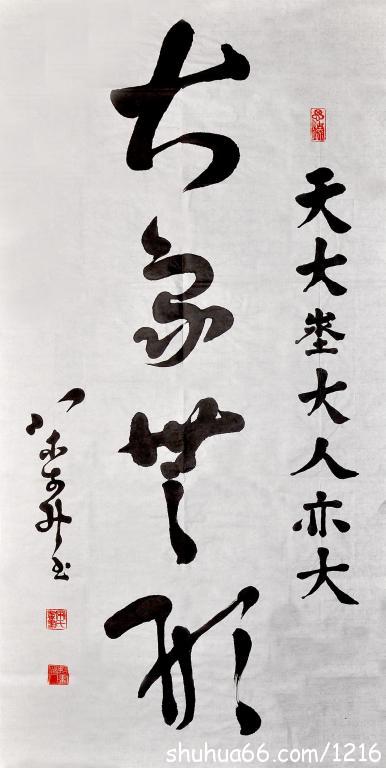 天大埊大人亦大
大象無形
shuhua66.com/1216